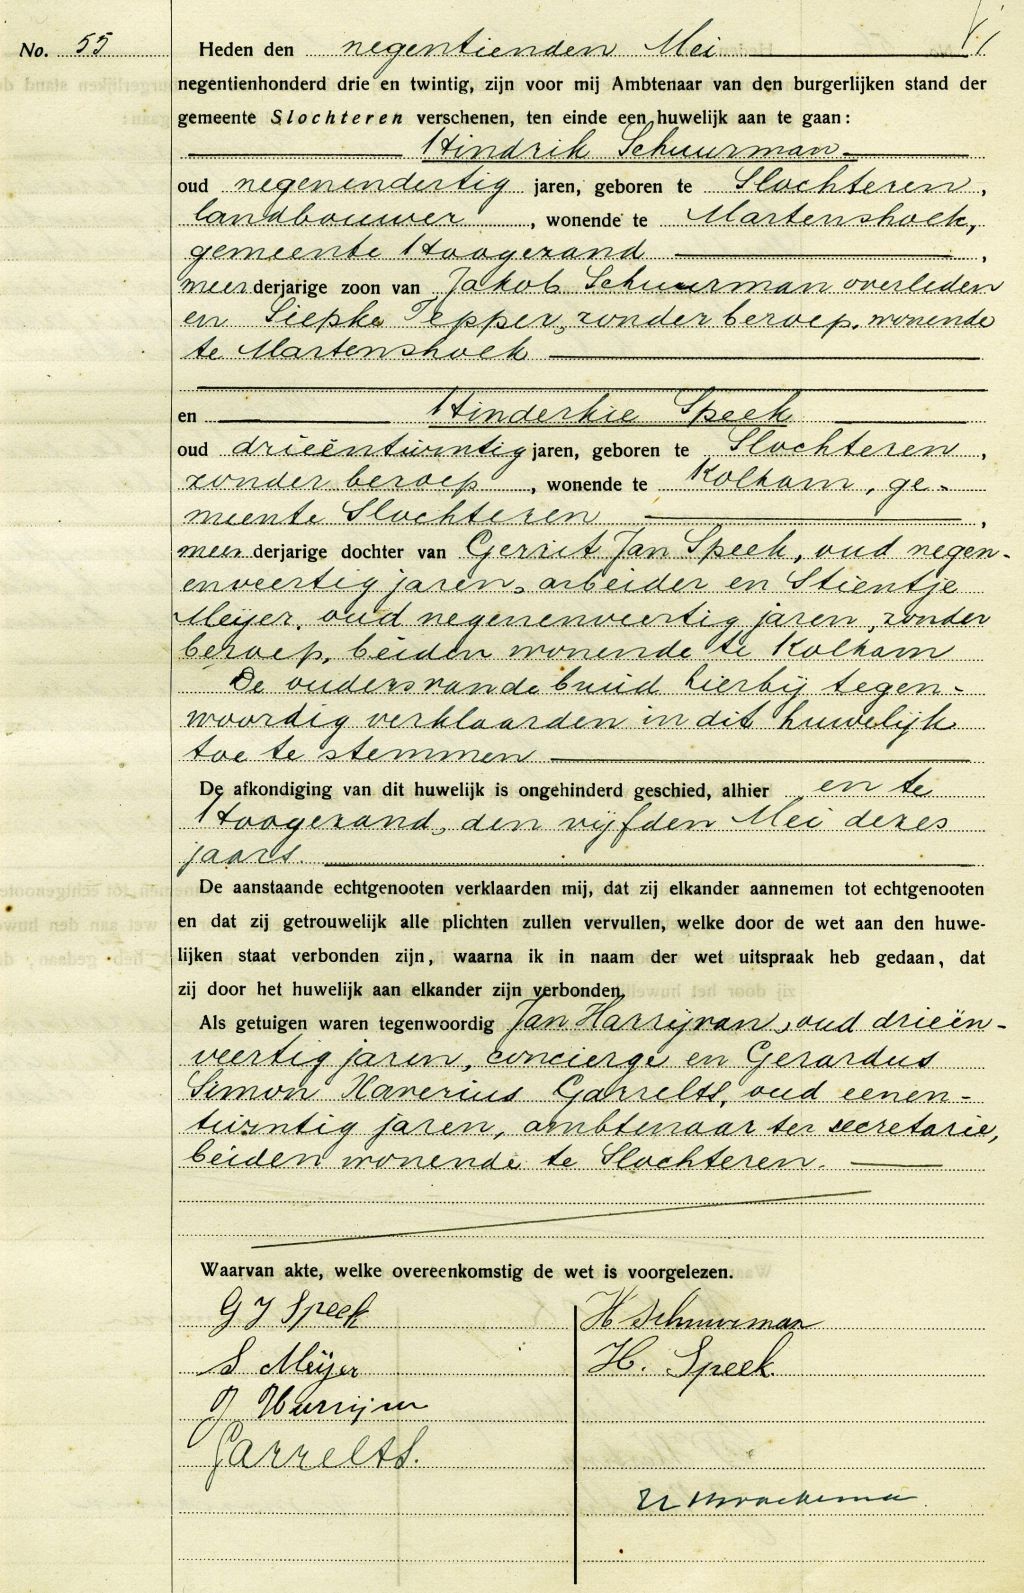 No. 55
Heden den negentienden Mei
negentienhonderd drie en twintig, zijn voor mij Ambtenaar van den burgerlijken stand der
gemeente Slochteren verschenen, ten einde een huwelijk aan te gaan:
Hindrik Schuurman
oud negenendertig jaren, geboren te Slochteren,
landbouwer, wonende te Martenshoek,
gemeente Hoogezand,
meerderjarige zoon van Jakob Schuurman overleden
en Siepke Tepper, zonder beroep, wonende
te Martenshoek
en Hinderkie Speek
oud drieëntwintig jaren, geboren te Slochteren,
zonder beroep, wonende te Kolham, ge-
meente Slochteren,
meerderjarige dochter van Gerrit Jan Speek, oud negen-
enveertig jaren, arbeider en Stientje
Meijer, oud negenenveertig jaren, zonder
beroep, beiden wonende te Kolham
De ouders van de bruid hierbij tegen-
woordig verklaarden in dit huwelijk
toe te stemmen
De afkondiging van dit huwelijk is ongehinderd geschied, alhier en te
Hoogezand, den vijfden Mei dezes
jaars.
De aanstaande echtgenooten verklaarden mij, dat zij elkander aannemen tot echtgenooten
en dat zij getrouwelijk alle plichten zullen vervullen, welke door de wet aan den huwe-
lijken staat verbonden zijn, waarna ik in naam der wet uitspraak heb gedaan, dat
zij door het huwelijk aan elkander zijn verbonden.
Als getuigen waren tegenwoordig Jan Harrijvan, oud drieën-
veertig jaren, concierge en Gerardus
Simon Xaverius Garrelts, oud eenen-
twintig jaren, ambtenaar ter secretarie,
beiden wonende te Slochteren.
Waarvan akte, welke overeenkomstig de wet is voorgelezen.
G J Speek
H Schuurman
S Meijer
H. Speek
J
Garrelts.